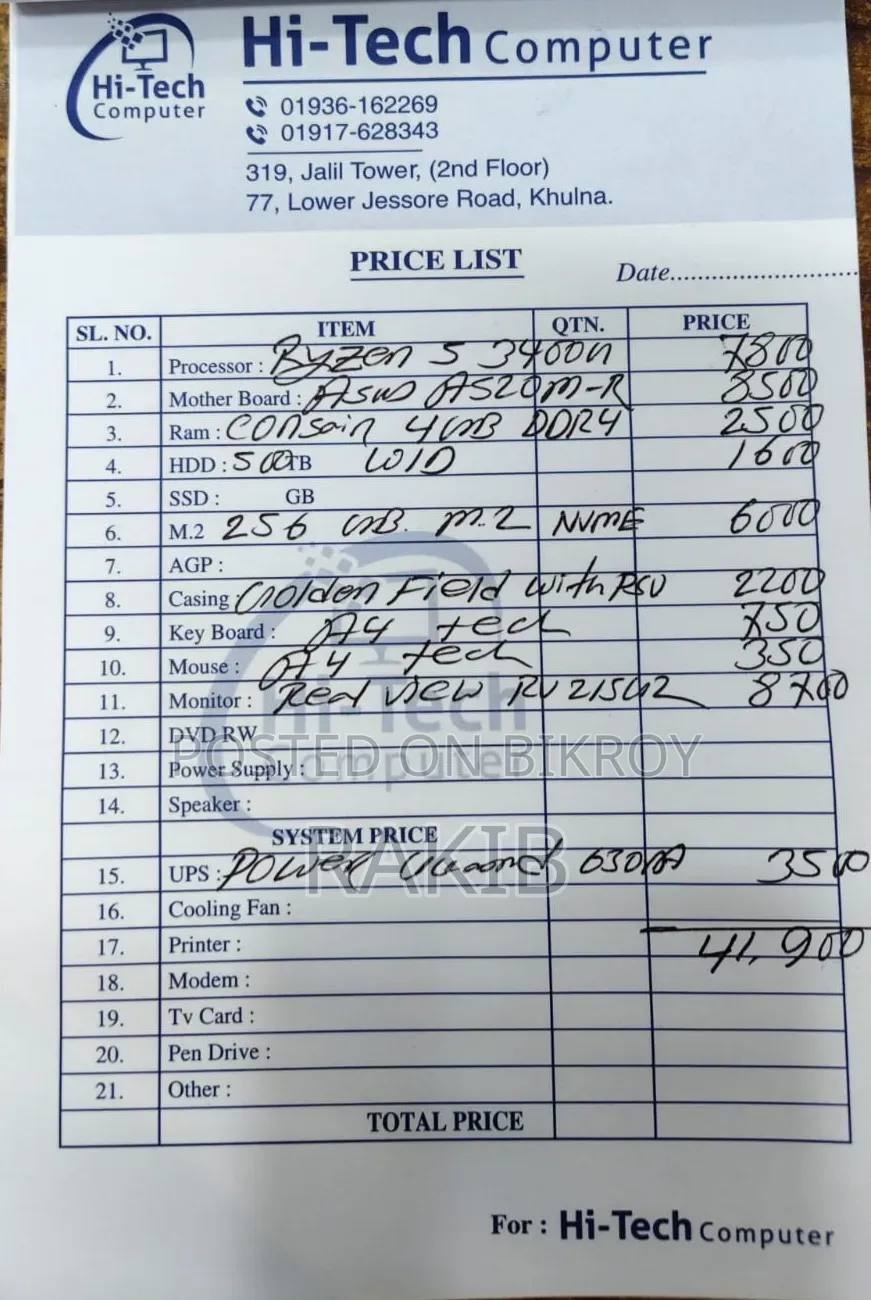 Hi-Tech Computer
Hi-Tech Computer
01936-162269
01917-628343
319, Jalil Tower, (2nd Floor)
77, Lower Jessore Road, Khulna.
PRICE LIST
Date..........................
SL. NO. ITEM QTN. PRICE
1. Processor : Ryzen 5 3400G 7800
2. Mother Board : Asus A520M-R 8500
3. Ram : Corsair 4GB DDR4 2500
4. HDD : 500TB W/D 1600
5. SSD : GB
6. M.2 256 GB. M.2 NVME 6000
7. AGP :
8. Casing Golden Field with PSU 2200
9. Key Board : A4 tech 750
10. Mouse : A4 tech 350
11. Monitor : Real view RV215G2 8700
12. DVD RW
13. Power Supply :
14. Speaker :
SYSTEM PRICE
15. UPS : Power Guard 650VA 3500
16. Cooling Fan :
17. Printer : 41,900
18. Modem :
19. Tv Card :
20. Pen Drive :
21. Other :
TOTAL PRICE
For : Hi-Tech Computer
Hi-Tech Computer
POSTED ON BIKROY
RAKIB